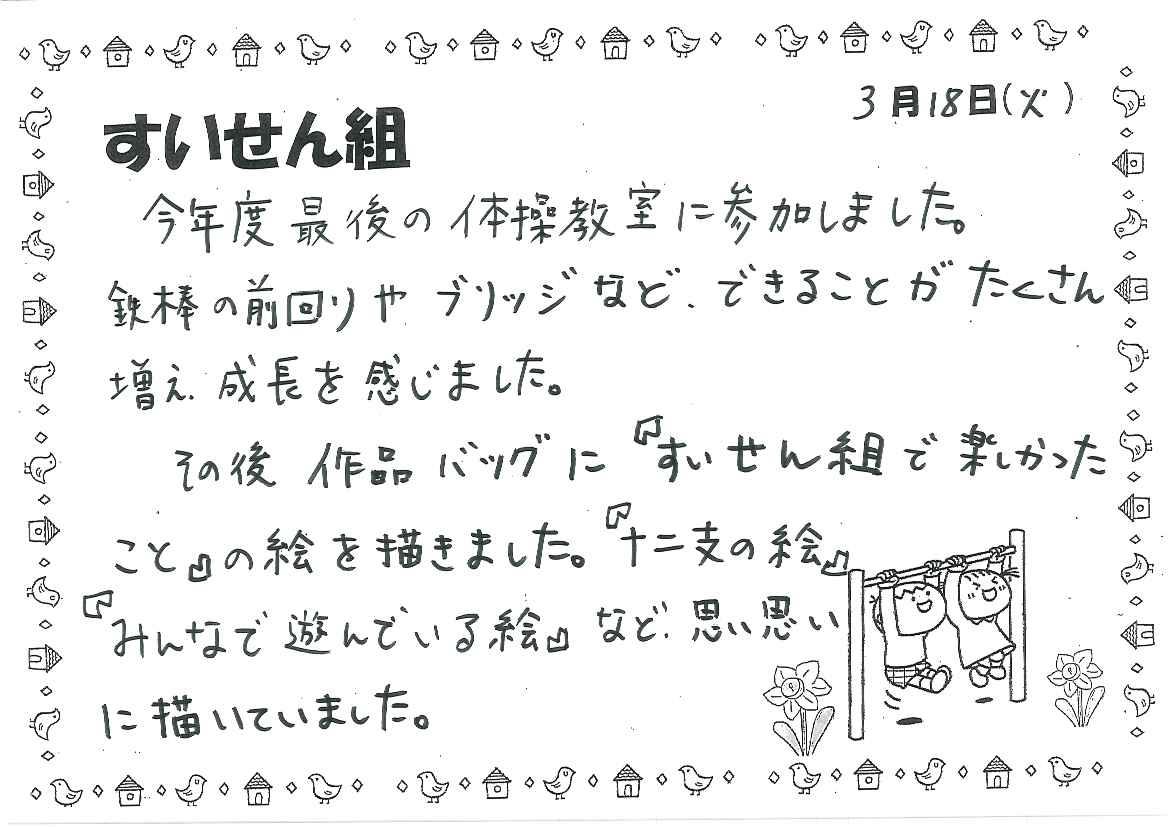 3月18日(火)
すいせん組
今年度最後の体操教室に参加しました。
鉄棒の前回りやブリッジなど、できることがたくさん
増え、成長を感じました。
その後作品バッグに『すいせん組で楽しかった
こと』の絵を描きました。『十二支の絵』
『みんなで遊んでいる絵』など、思い思い
に描いていました。